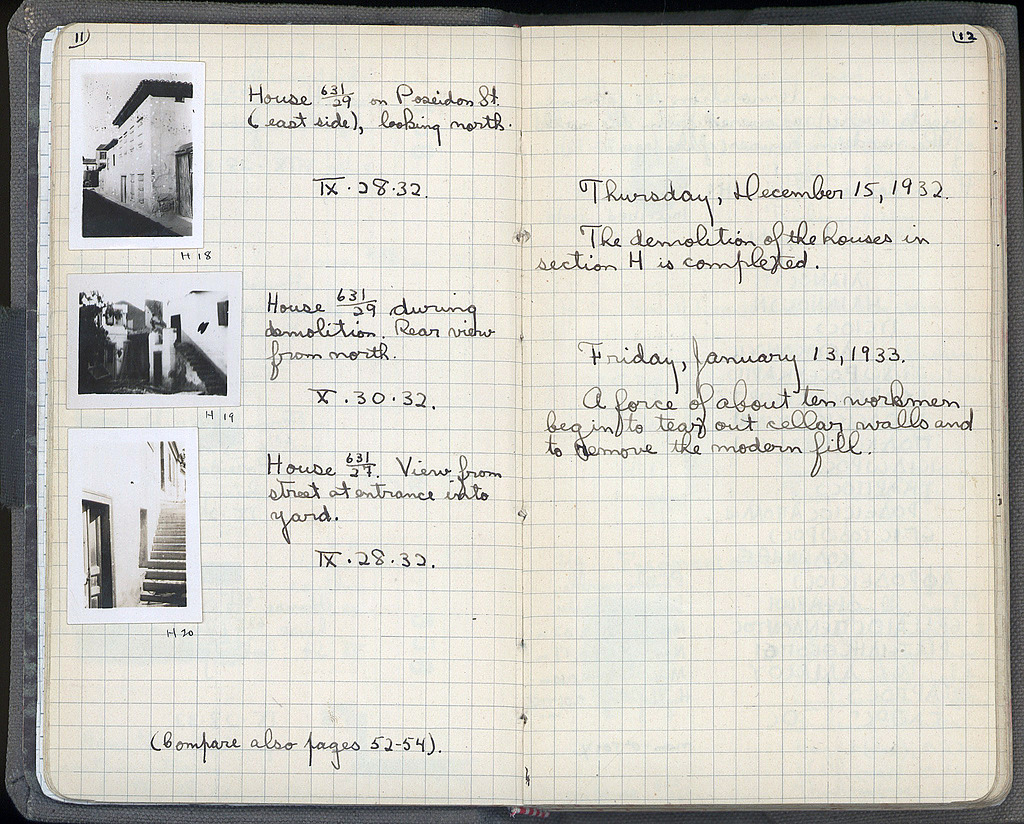 11
House 631/29 on Poseidon St.
(east side), looking north.
IX·28·32.
H 18
House 631/29 during
demolition. Rear view
from north.
X·30·32.
H 19
House 631/27. View from
street at entrance into
yard.
IX·28·32.
H 20
(Compare also pages 52-54).
12
Thursday, December 15, 1932.
The demolition of the houses in
section H is completed.
Friday, January 13, 1933.
A force of about ten workmen
begin to tear out cellar walls and
to remove the modern fill.